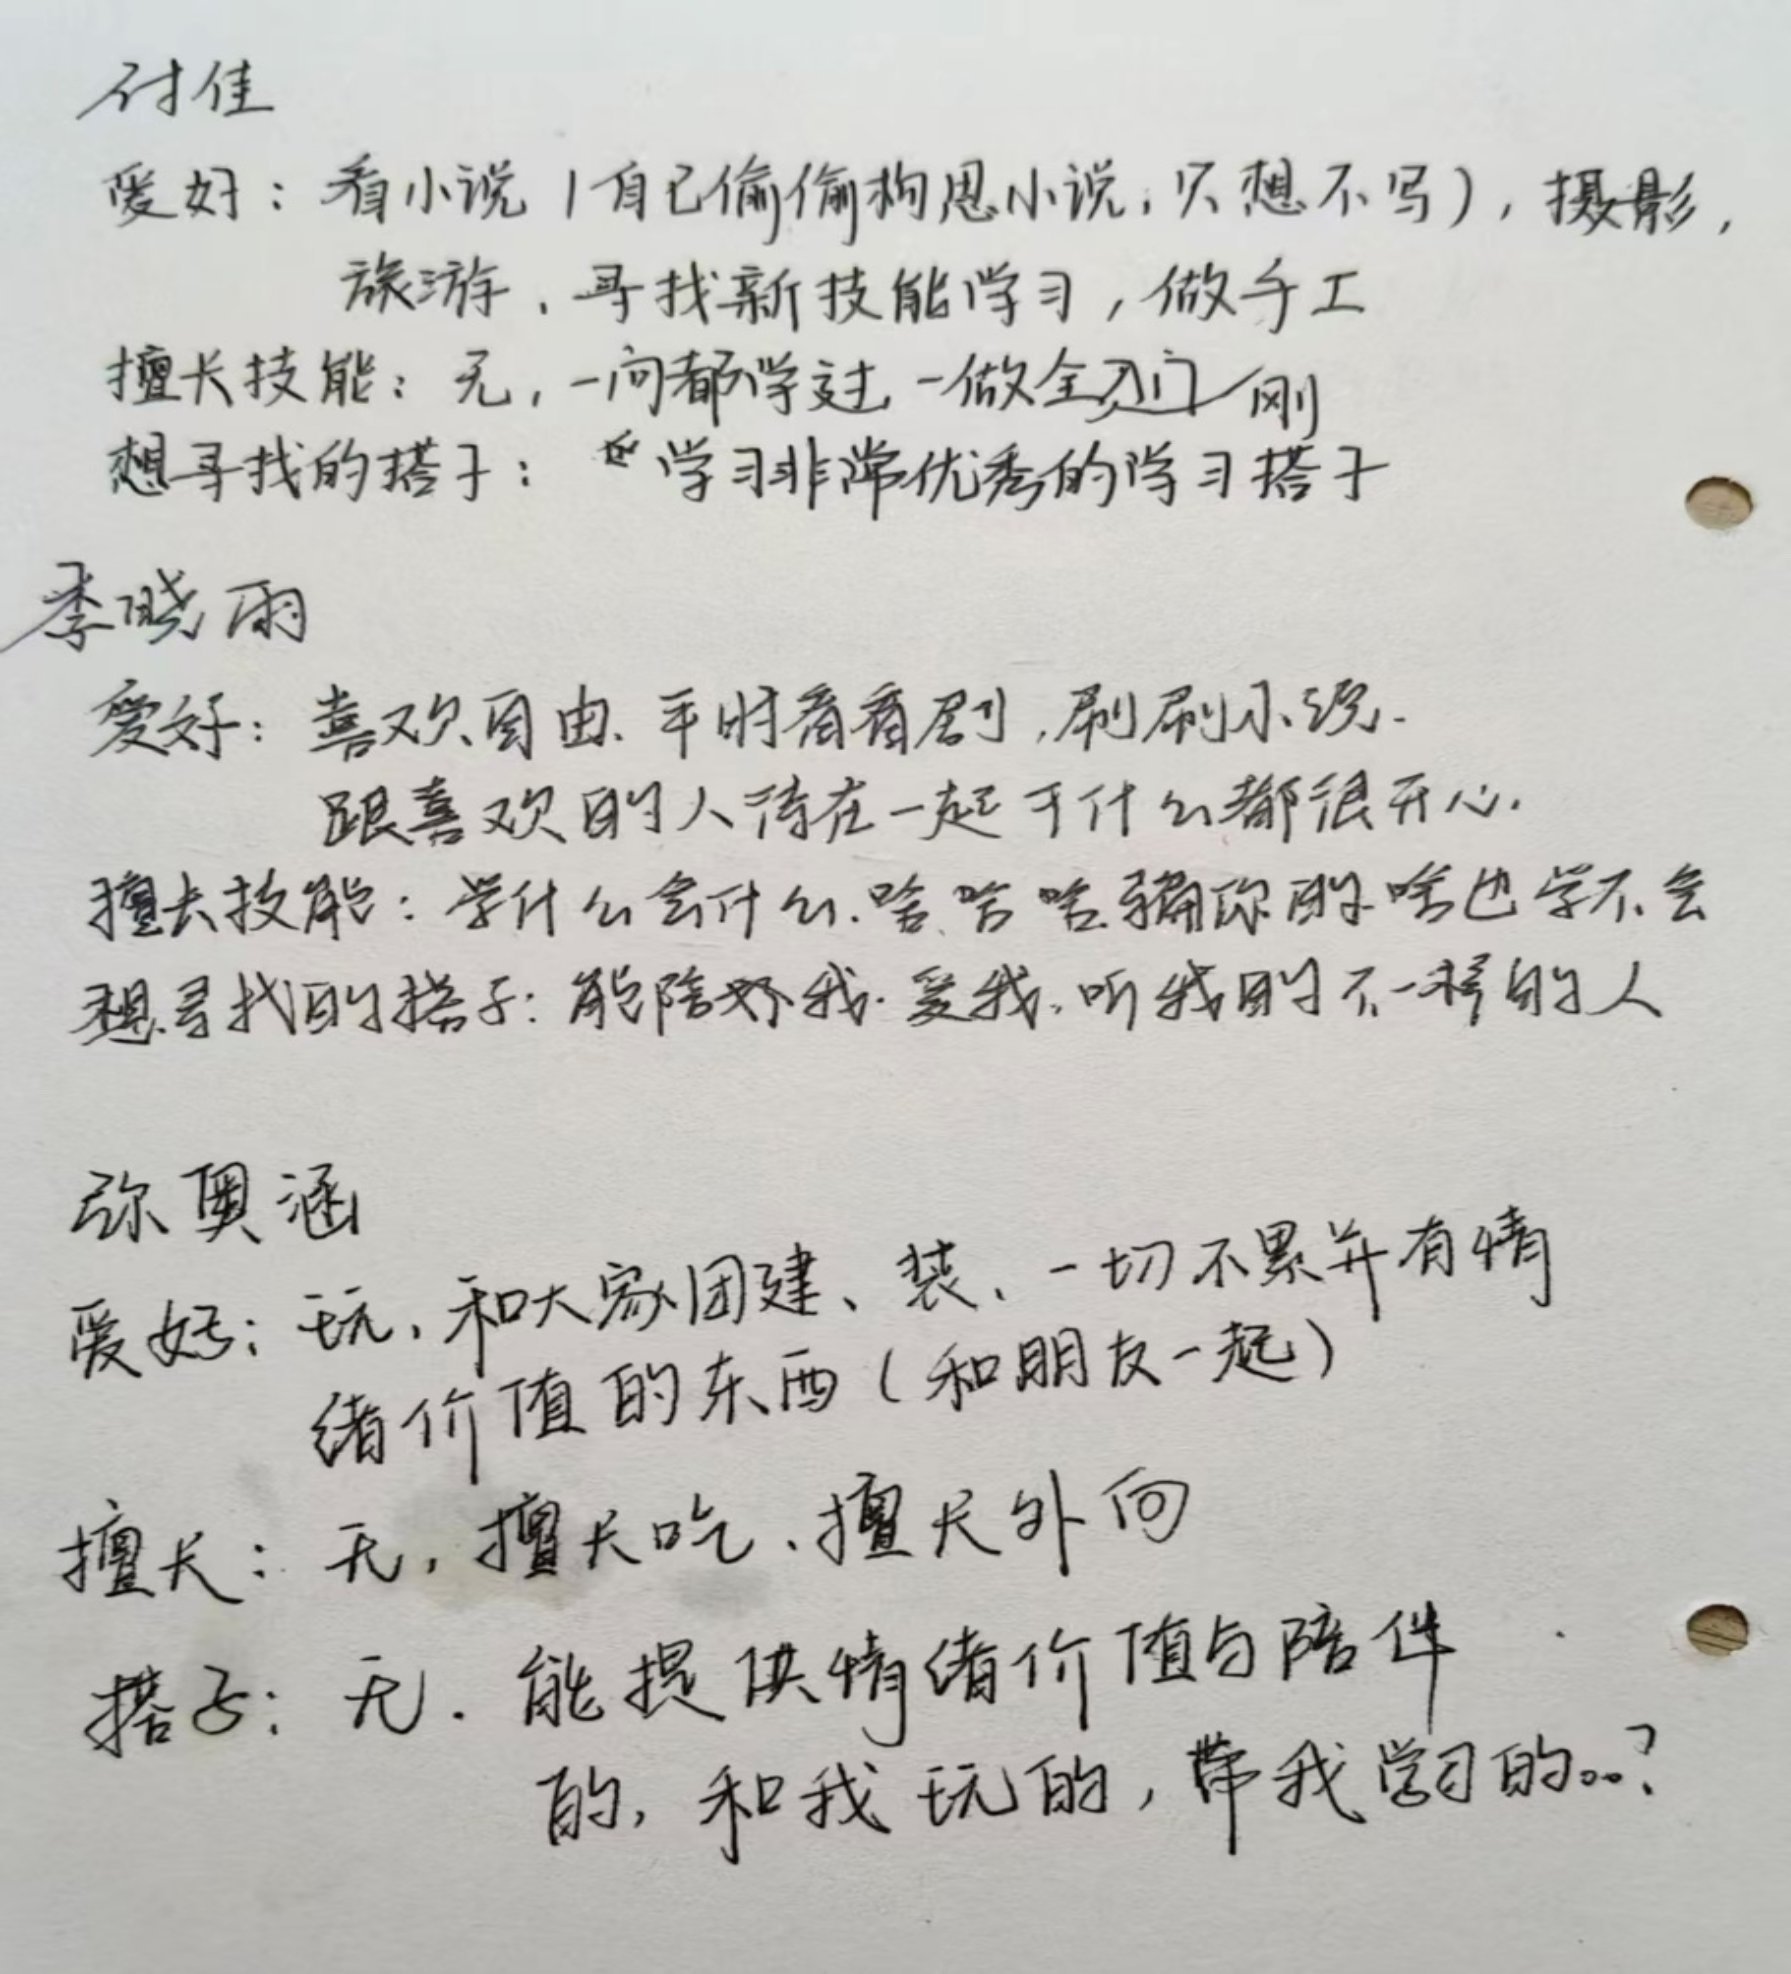 付佳
爱好：看小说（自己偷偷构思小说，只想不写），摄影，
旅游、寻找新技能学习，做手工
擅长技能：无，一问都学过，一做全刚入门
想寻找的搭子：学习非常优秀的学习搭子
李晓雨
爱好：喜欢自由、平时看看剧，刷刷小说.
跟喜欢的人待在一起干什么都很开心.
擅长技能：学什么会什么.哈哈哈骗你的啥也学不会
想寻找的搭子：能陪好我.爱我.听我的不一样的人
弥奥涵
爱好：玩，和大家团建、装、一切不累并有情
绪价值的东西（和朋友一起）
擅长：无，擅长吃、擅长外向
搭子：无.能提供情绪价值与陪伴
的，和我玩的，带我学习的。。？